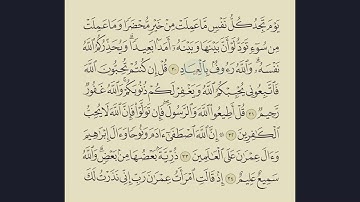 يَوْمَ تَجِدُ كُلُّ نَفْسٍ مَّا عَمِلَتْ مِنْ خَيْرٍ مُّحْضَرًا وَمَا عَمِلَتْ
مِن سُوٓءٍ تَوَدُّ لَوْ أَنَّ بَيْنَهَا وَبَيْنَهُۥٓ أَمَدًۢا بَعِيدًا ۗ وَيُحَذِّرُكُمُ ٱللَّهُ
نَفْسَهُۥ ۗ وَٱللَّهُ رَءُوفٌۢ بِٱلْعِبَادِ ٣٠ قُلْ إِن كُنتُمْ تُحِبُّونَ ٱللَّهَ
فَٱتَّبِعُونِى يُحْبِبْكُمُ ٱللَّهُ وَيَغْفِرْ لَكُمْ ذُنُوبَكُمْ ۗ وَٱللَّهُ غَفُورٌ
رَّحِيمٌ ٣١ قُلْ أَطِيعُوا۟ ٱللَّهَ وَٱلرَّسُولَ ۖ فَإِن تَوَلَّوْا۟ فَإِنَّ ٱللَّهَ لَا يُحِبُّ
ٱلْكَٰفِرِينَ ٣٢ ۞ إِنَّ ٱللَّهَ ٱصْطَفَىٰٓ ءَادَمَ وَنُوحًا وَءَالَ إِبْرَٰهِيمَ
وَءَالَ عِمْرَٰنَ عَلَى ٱلْعَٰلَمِينَ ٣٣ ذُرِّيَّةًۢ بَعْضُهَا مِنۢ بَعْضٍ ۗ وَٱللَّهُ
سَمِيعٌ عَلِيمٌ ٣٤ إِذْ قَالَتِ ٱمْرَأَتُ عِمْرَٰنَ رَبِّ إِنِّى نَذَرْتُ لَكَ